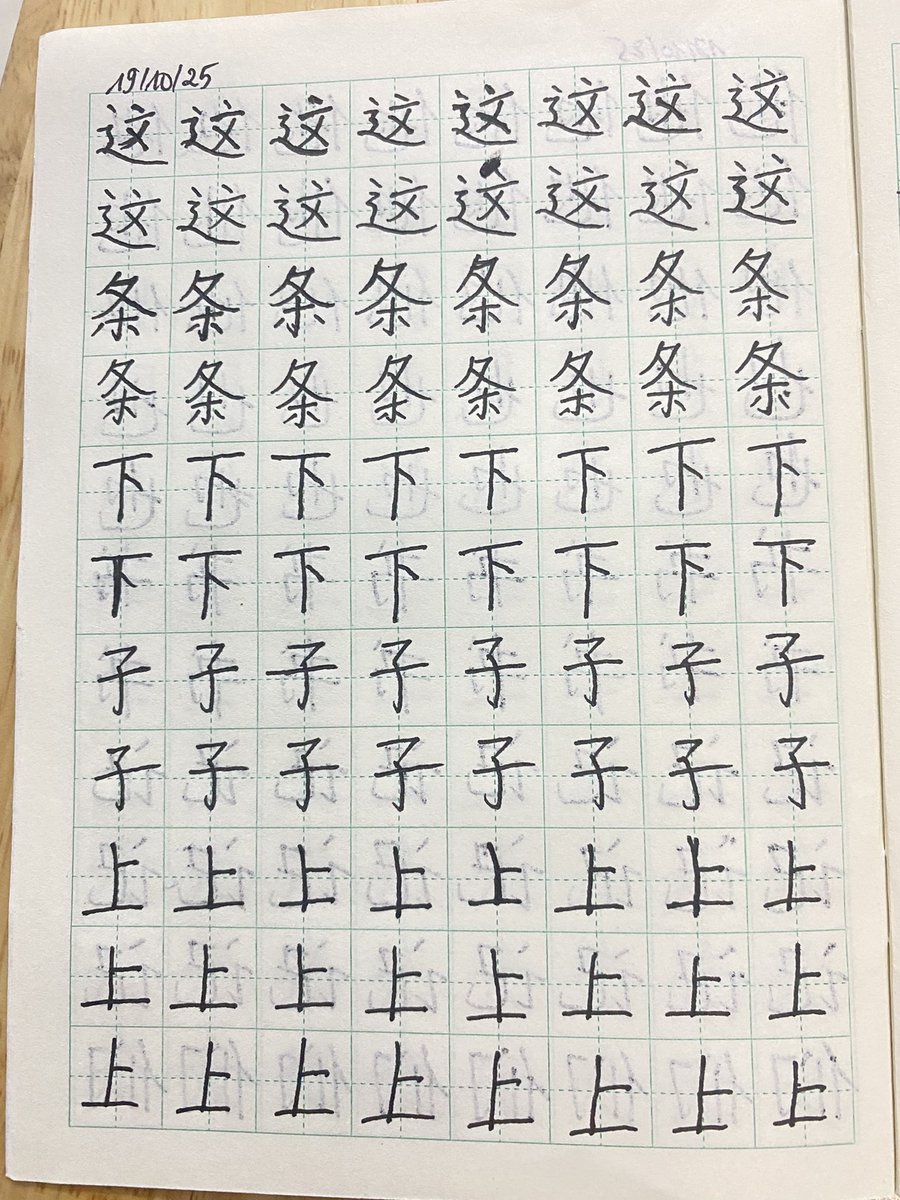 19/10/25
这这这这这这这这
这这这这这这这这
条条条条条条条条
条条条条条条条条
下下下下下下下下
下下下下下下下下
子子子子子子子子
子子子子子子子子
上上上上上上上上
上上上上上上上上
上上上上上上上上